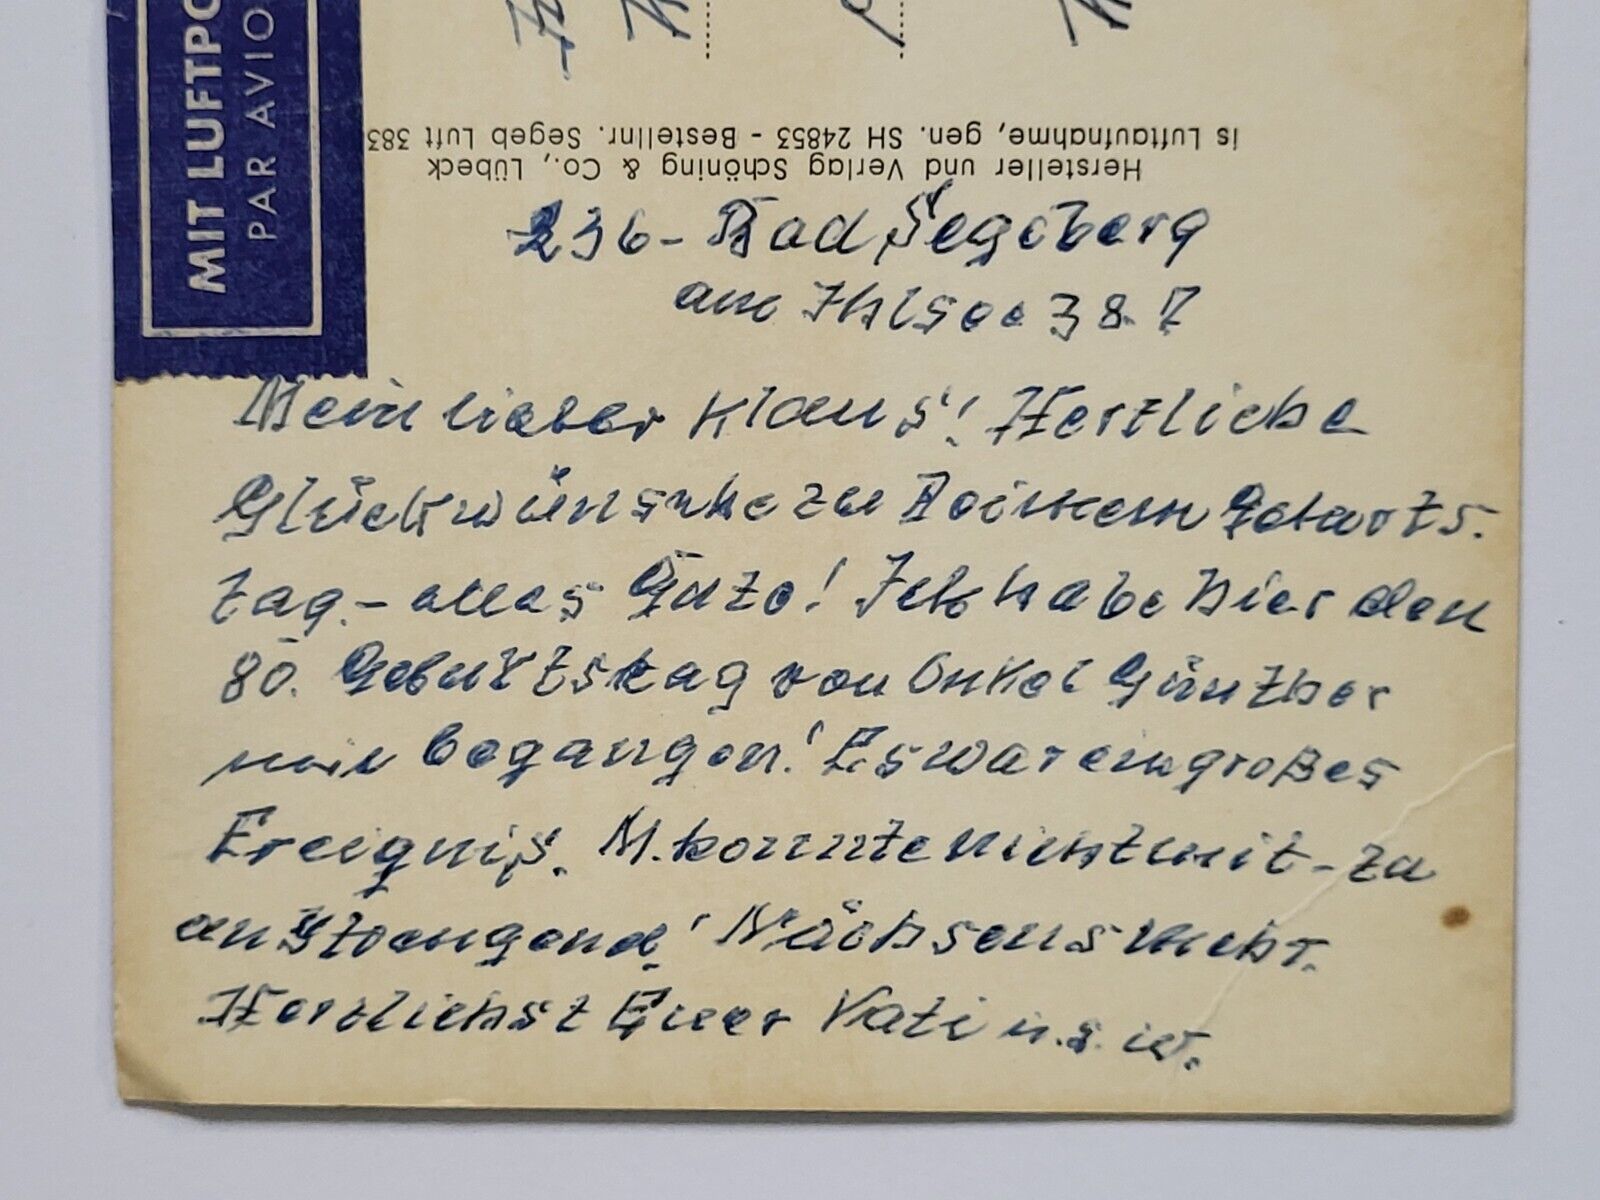 MIT LUFTPO
PAR AVIO
is Luftaufnahme, gen. SH 24853 - Bestellnr. Segeb Luft 383
Hersteller und Verlag Schöning & Co., Lübeck
236 - Bad Segeberg
am Ihlsee 38. 7
Mein lieber Klaus! Herzliche
Glückwünsche zu Deinem Geburts-
tag. - alles Gute! Ich habe hier den
80. Geburtstag von Onkel Günther
begangen! Es war ein großes
Ereignis. M. konnte nicht mit - zu
anstrengend! Nächsens mehr.
Herzlichst Euer Vati u.s.w.